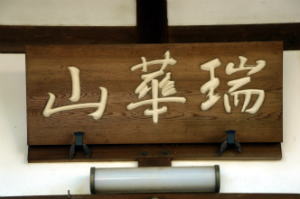 瑞華山